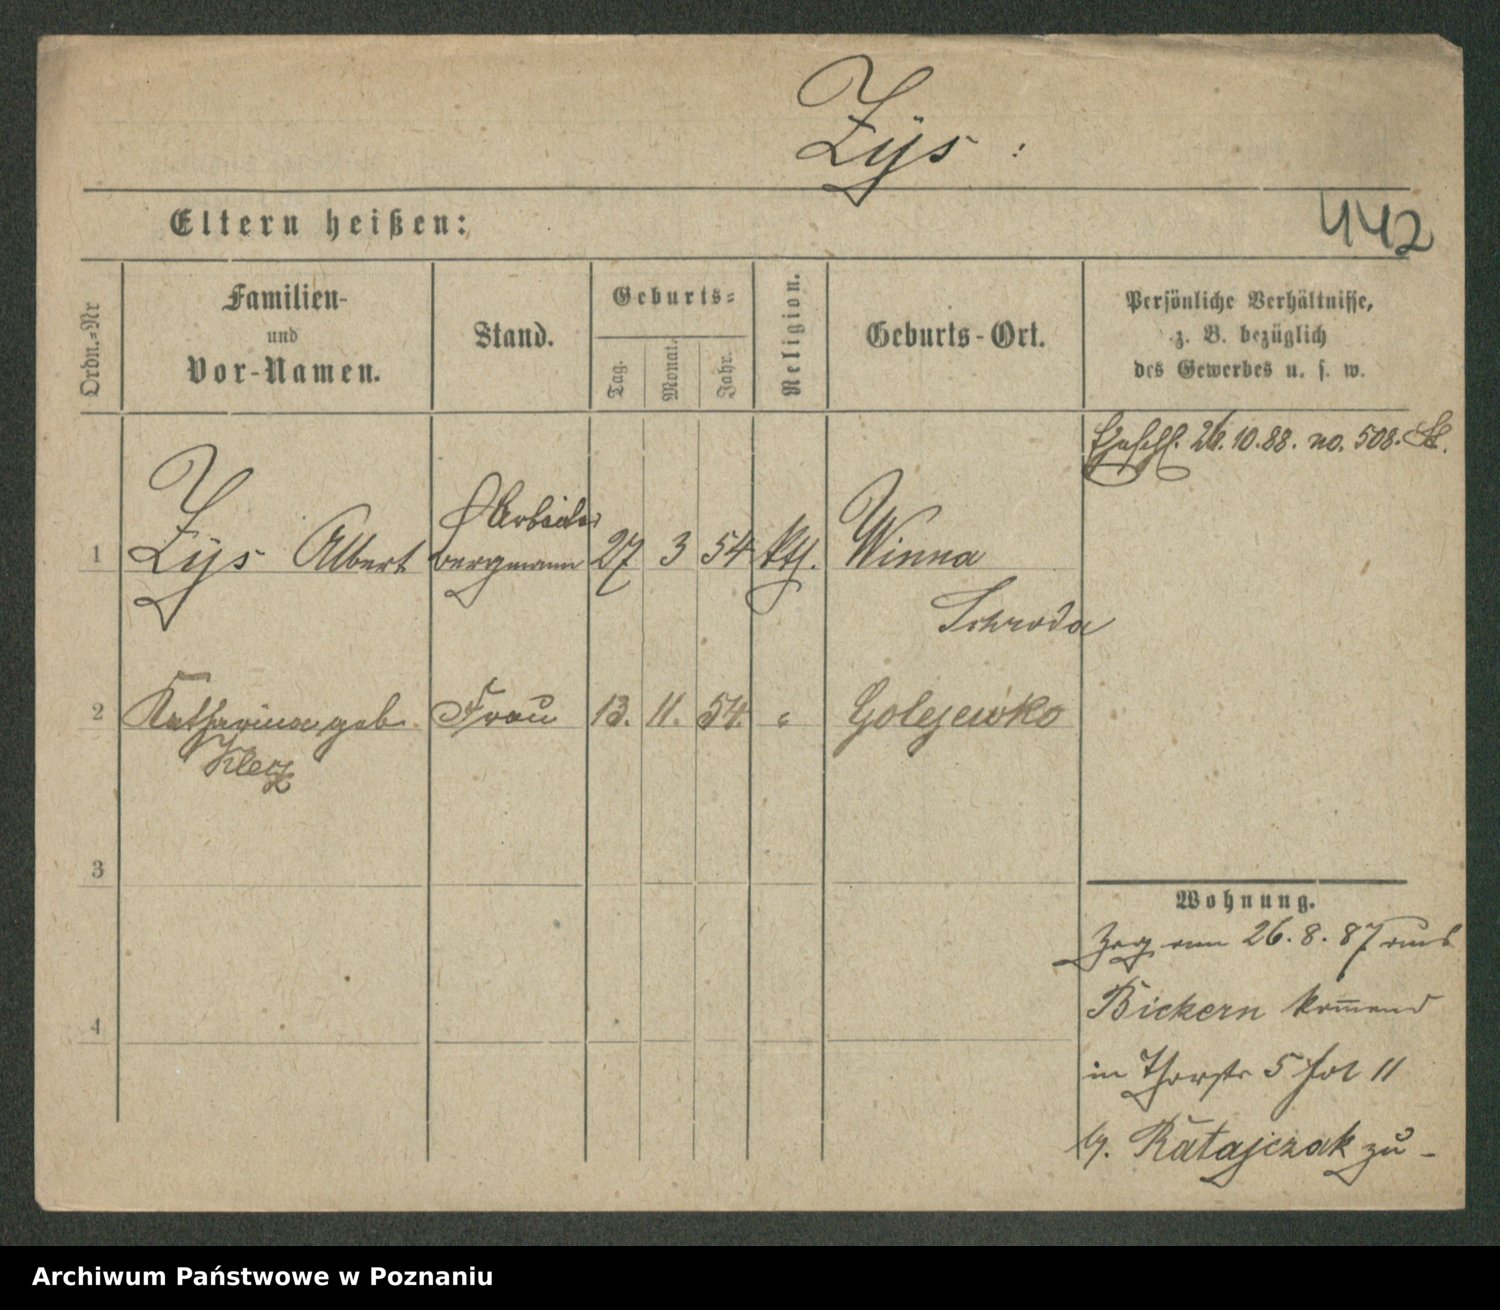 Zÿs :
Eltern heißen:
442
Ordn.=Nr
Familien-
und
Vor-Namen.
Stand.
Geburts=
Tag.
Monat.
Jahr.
Religion.
Geburts-Ort.
Persönliche Verhältnisse,
z. B. bezüglich
des Gewerbes u. s. w.
26.10.88. no. 508.
Arbeiter
1 Zÿs Albert Bergmann 27 3 54 kth. Winna
Schroda
2 Katharina geb Frau 13. 11. 54. " Golejewko
3
Wohnung.
Zog am 26. 8. 87 aus
Bickern kom̄end
4
in Thorstr 5 Hof 11
b/. Ratajczak zu -
Archiwum Państwowe w Poznaniu